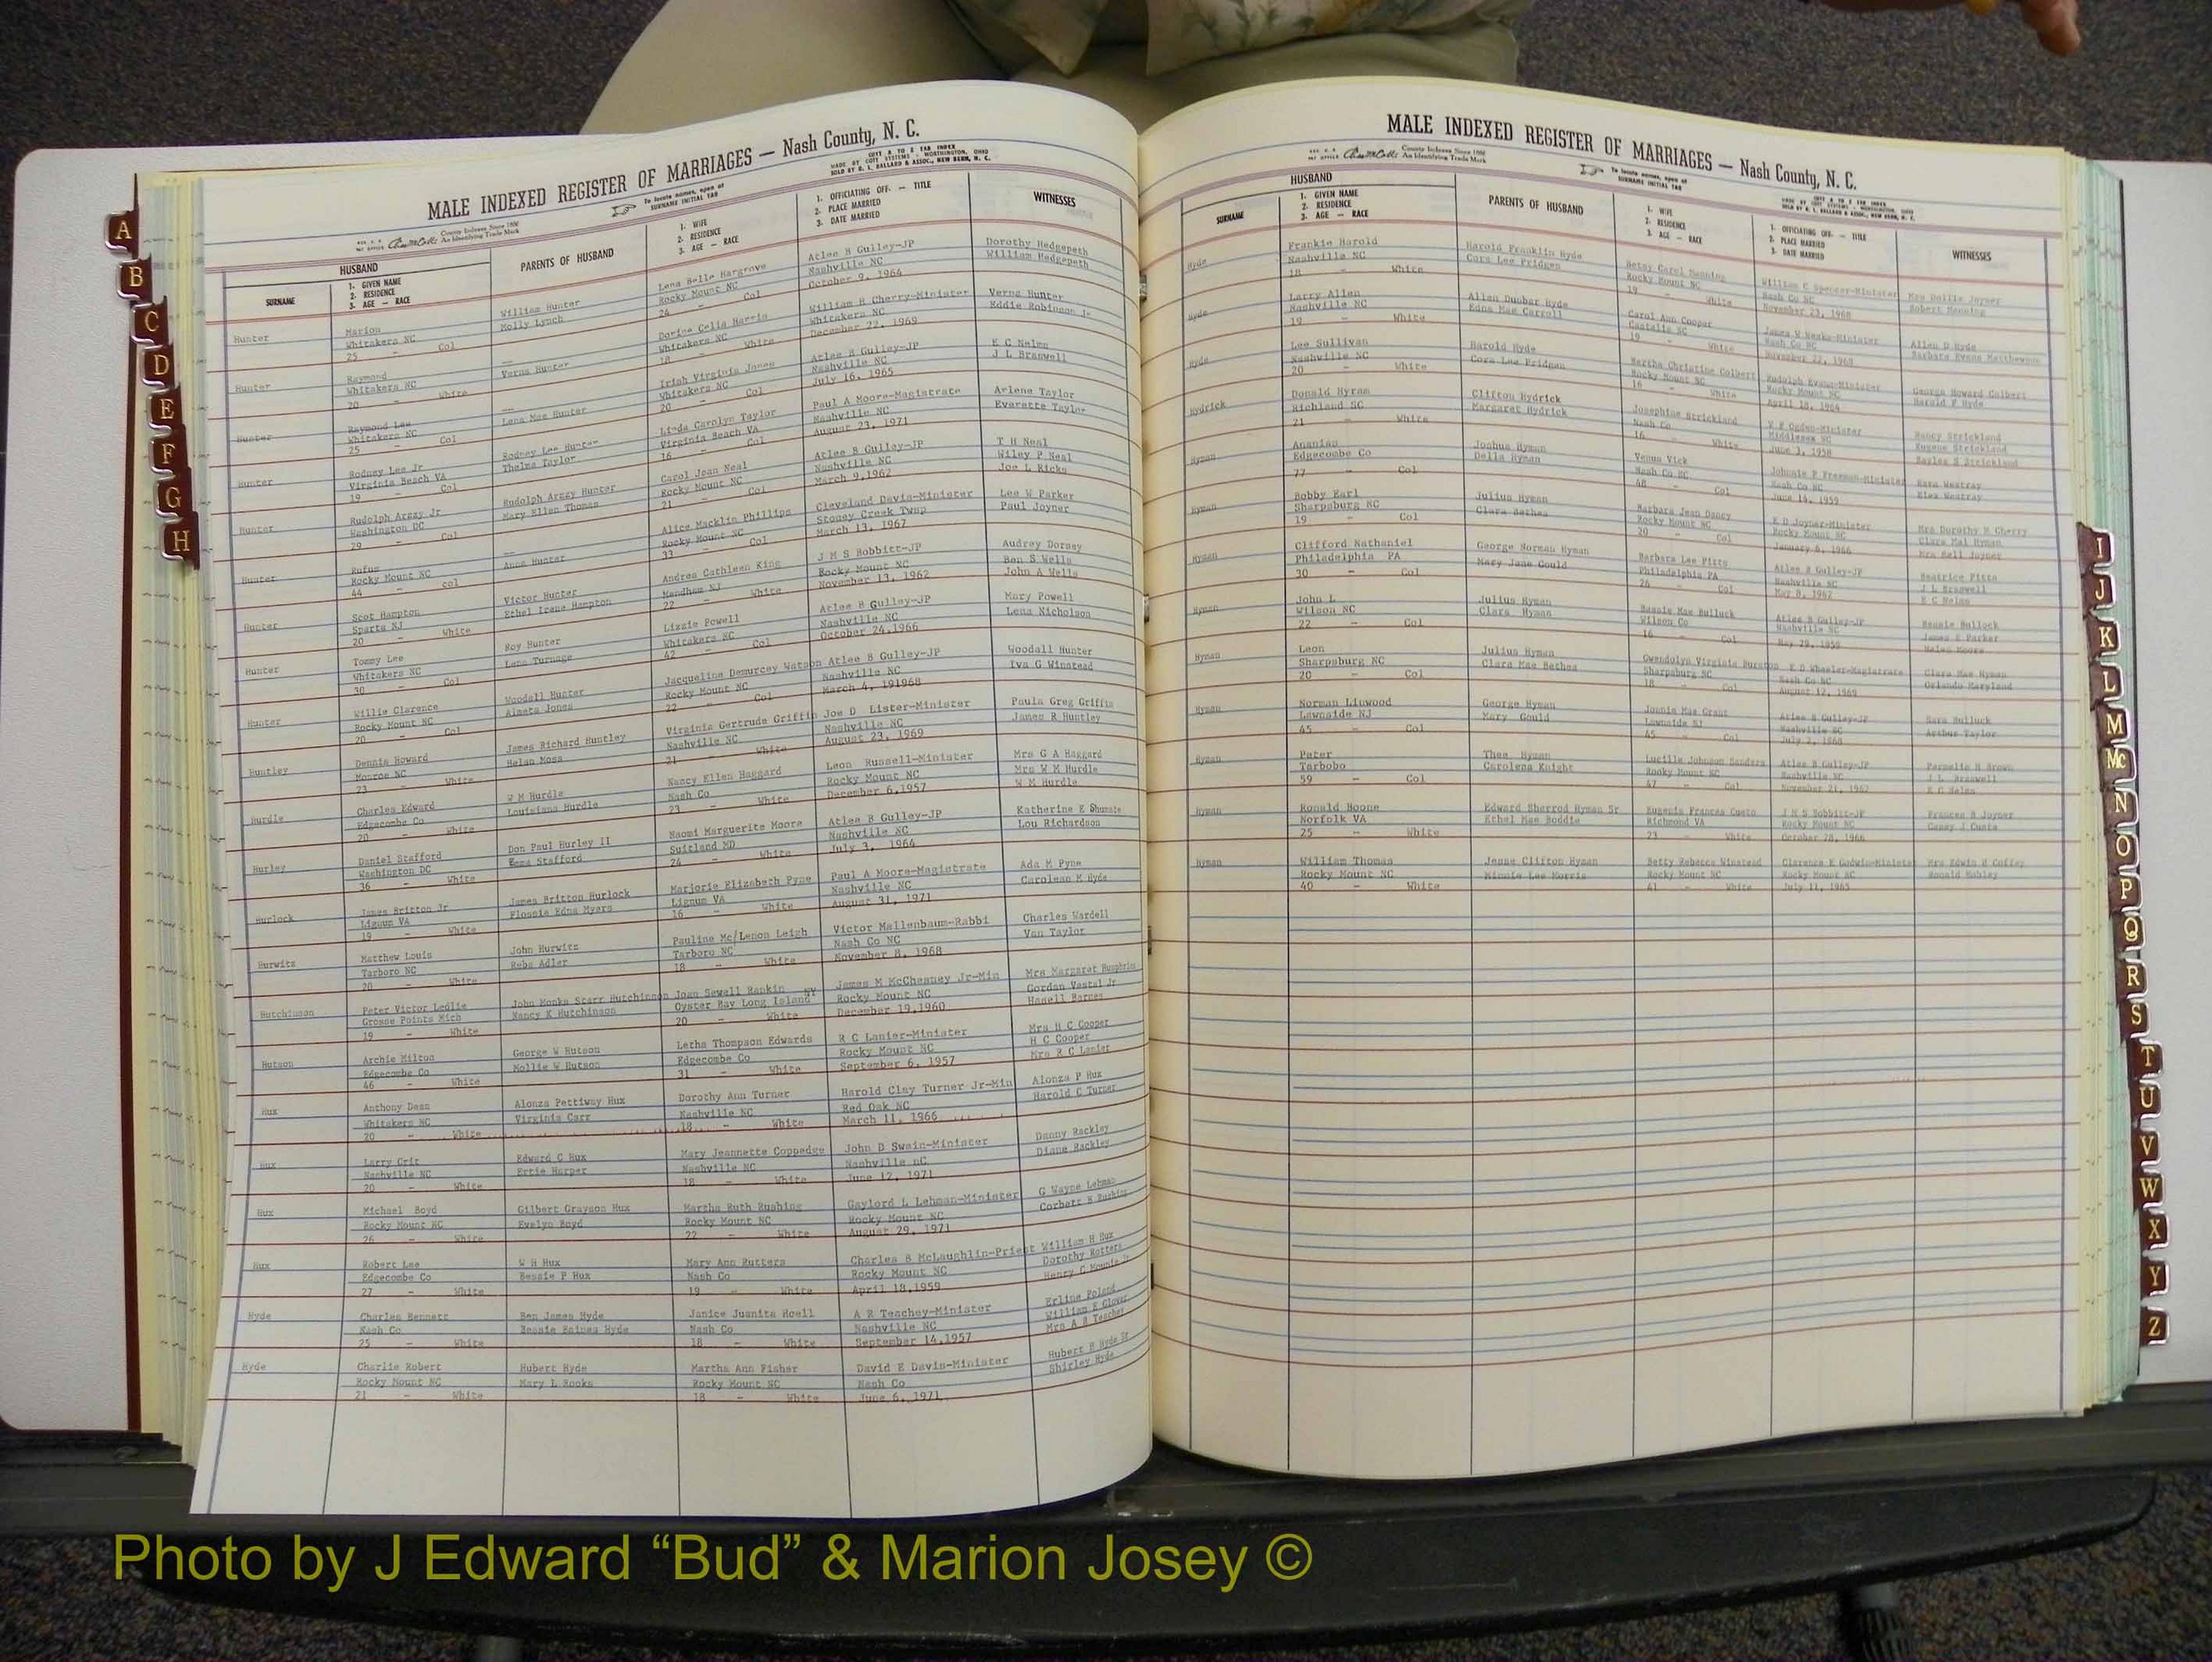 MALE INDEXED REGISTER OF MARRIAGES — Nash County, N. C.
County Indexes Since 1888
An Identifying Trade Mark
To locate names, open at
SURNAME INITIAL TAB
COTT A TO Z TAB INDEX
MADE BY COTT SYSTEMS - WORTHINGTON, OHIO
SOLD BY O. L. BALLARD & ASSOC., NEW BERN, N. C.
HUSBAND
SURNAME
1. GIVEN NAME
2. RESIDENCE
3. AGE — RACE
PARENTS OF HUSBAND
1. WIFE
2. RESIDENCE
3. AGE — RACE
1. OFFICIATING OFF. — TITLE
2. PLACE MARRIED
3. DATE MARRIED
WITNESSES
Hunter Marion William Hunter Lena Belle Hargrove Atlee B Gulley-JP Dorothy Hedgepeth
Whitakers NC Molly Lynch Rocky Mount NC Nashville NC William Hedgepeth
25 - Col 24 - Col October 9, 1964
Hunter Raymond — Dorine Celia Harris William H Cherry-Minister Verna Hunter
Whitakers NC Verna Hunter Whitakers NC Whitakers NC Eddie Robinson Jr
20 - White 18 - White December 22, 1969
Hunter Raymond Lee — Irish Virginia Jones Atlee B Gulley-JP E C Nelms
Whitakers NC Lena Mae Hunter Whitakers NC Nashville NC J L Braswell
25 - Col 20 - Col July 16, 1965
Hunter Rodney Lee Jr Rodney Lee Hunter Linda Carolyn Taylor Paul A Moore-Magistrate Arlene Taylor
Virginia Beach VA Thelma Taylor Virginia Beach VA Nashville NC Everette Taylor
19 - Col 16 - Col August 23, 1971
Hunter Rudolph Arzay Jr Rudolph Arzay Hunter Carol Jean Neal Atlee B Gulley-JP T H Neal
Washington DC Mary Ellen Thomas Rocky Mount NC Nashville NC Wiley P Neal
29 - Col 21 - Col March 9,1962 Joe L Ricks
Hunter Rufus — Alice Macklin Phillips Cleveland Davis-Minister Lee W Parker
Rocky Mount NC Anna Hunter Rocky Mount NC Stoney Creek Twnp Paul Joyner
44 - col 33 - Col March 13, 1967
Hunter Scot Hampton Victor Hunter Andrea Cathleen King J M S Bobbitt-JP Audrey Dorsey
Sparta NJ Ethel Irene Hampton Mendham NJ Rocky Mount NC Ben S Wells
20 - White 22 - White November 13, 1962 John A Wells
Hunter Tommy Lee Roy Hunter Lizzie Powell Atlee B Gulley-JP Mary Powell
Whitakers NC Lena Turnage Whitakers NC Nashville NC Lena Nicholson
30 - Col 42 - Col October 24,1966
Hunter Willie Clarence Woodall Hunter Jacqueline Demurcey Watson Atlee B Gulley-JP Woodall Hunter
Rocky Mount NC Almeta Jones Rocky Mount NC Nashville NC Iva G Winstead
20 - Col 22 - Col March 4, 191968
Huntley Dennis Howard James Richard Huntley Virginia Gertrude Griffin Joe D Lister-Minister Paula Greg Griffin
Monroe NC Helan Moss Nashville NC Nashville NC James R Huntley
23 - White 21 - White August 23, 1969
Hurdle Charles Edward W M Hurdle Nancy Ellen Haggard Leon Russell-Minister Mrs G A Haggard
Edgecombe Co Louisiana Hurdle Nash Co Rocky Mount NC Mrs W M Hurdle
20 - White 23 - White December 6,1957 W M Hurdle
Hurley Daniel Stafford Don Paul Hurley II Naomi Marguerite Moore Atlee B Gulley-JP Katherine E Shumate
Washington DC Emma Stafford Suitland MD Nashville NC Lou Richardson
36 - White 24 - White July 3, 1964
Hurlock James Britton Jr James Britton Hurlock Marjorie Elizabeth Pyne Paul A Moore-Magistrate Ada M Pyne
Lignum VA Flossie Edna Myers Lignum VA Nashville NC Carolean M Hyde
19 - White 16 - White August 31, 1971
Hurwitz Matthew Louis John Hurwitz Pauline Mc/Lenon Leigh Victor Mallenbaum-Rabbi Charles Wardell
Tarboro NC Reba Adler Tarboro NC Nash Co NC Van Taylor
20 - White 18 - White November 8, 1968
Hutchinson Peter Victor Leslie John Monks Starr Hutchinson Joan Sewell Rankin James M McChesney Jr-Min Mrs Margaret Humphries
Grosse Points Mich Nancy K Hutchinson Oyster Bay Long Island NY Rocky Mount NC Gordan Vestal Jr
19 - White 20 - White December 19,1960 Hasell Barnes
Hutson Archie Milton George W Hutson Letha Thompson Edwards R C Lanier-Minister Mrs H C Cooper
Edgecombe Co Mollie W Hutson Edgecombe Co Rocky Mount NC H C Cooper
46 - White 31 - White September 6, 1957 Mrs R C Lanier
Hux Anthony Dean Alonza Pettiway Hux Dorothy Ann Turner Harold Clay Turner Jr-Min Alonza P Hux
Whitakers NC Virginia Carr Nashville NC Red Oak NC Harold C Turner
20 - White 18 - White March 11, 1966
Hux Larry Crit Edward C Hux Mary Jeannette Coppedge John D Swain-Minister Danny Rackley
Nashville NC Ertie Harper Nashville NC Nashville nC Diane Rackley
20 - White 18 - White June 12, 1971
Hux Michael Boyd Gilbert Grayson Hux Martha Ruth Rushing Gaylord L Lehman-Minister G Wayne Lehman
Rocky Mount NC Evelyn Boyd Rocky Mount NC Rocky Mount NC Corbett B Rushing
26 - White 22 - White August 29, 1971
Hux Robert Lee W H Hux Mary Ann Rutters Charles B McLaughlin-Priest William H Hux
Edgecombe Co Bessie P Hux Nash Co Rocky Mount NC Dorothy Rotters
27 - White 19 - White April 18,1959 Henry G
Hyde Charles Bennett Ben James Hyde Janice Juanita Hoell A R Teachey-Minister Erline Poland
Nash Co Bessie Baines Hyde Nash Co Nashville NC William E Glover
25 - White 18 - White September 14,1957 Mrs A R Teachey
Hyde Charlie Robert Hubert Hyde Martha Ann Fisher David E Davis-Minister Hubert B Hyde Sr
Rocky Mount NC Mary L Rooks Rocky Mount NC Nash Co Shirley Hyde
21 - White 18 - White June 6, 1971
MALE INDEXED REGISTER OF MARRIAGES — Nash County, N. C.
County Indexes Since 1888
An Identifying Trade Mark
To locate names, open at
SURNAME INITIAL TAB
COTT A TO Z TAB INDEX
MADE BY COTT SYSTEMS - WORTHINGTON, OHIO
SOLD BY O. L. BALLARD & ASSOC., NEW BERN, N. C.
HUSBAND
SURNAME
1. GIVEN NAME
2. RESIDENCE
3. AGE — RACE
PARENTS OF HUSBAND
1. WIFE
2. RESIDENCE
3. AGE — RACE
1. OFFICIATING OFF. — TITLE
2. PLACE MARRIED
3. DATE MARRIED
WITNESSES
Hyde Frankie Harold Harold Franklin Hyde Betsy Carol Manning William C Spencer-Minister Mrs Dollie Joyner
Nashville NC Cora Lee Pridgen Rocky Mount NC Nash Co NC Robert Manning
18 - White 19 - White November 23, 1968
Hyde Larry Allen Allen Dunbar Hyde Carol Ann Cooper James W Weeks-Minister Allen D Hyde
Nashville NC Edna Mae Carroll Castalia NC Nash Co NC Barbara Evans Matthewson
19 - White 19 - White November 22, 1969
Hyde Lee Sullivan Harold Hyde Martha Christine Colbert Rudolph Evans-Minister George Howard Colbert
Nashville NC Cora Lee Pridgen Rocky Mount NC Rocky Mount NC Harold F Hyde
20 - White 16 - White April 18, 1964
Hydrick Donald Hyram Clifton Hydrick Josephine Strickland Ogden-Minister Nancy Strickland
Richland SC Margaret Hydrick Nash Co Middlesex NC Eugene Strickland
21 - White 16 - White June 3, 1958 Bayles S Strickland
Hyman Ananias Joshua Hyman Venus Vick Johnnie P Freeman-Minister Sara Westray
Edgecombe Co Della Hyman Nash Co NC Nash Co NC Westray
77 - Col 48 - Col June 14, 1959
Hyman Bobby Earl Julius Hyman Barbara Jean Dancy E D Joyner-Minister Mrs Dorothy H Cherry
Sharpsburg NC Clara Bethea Rocky Mount NC Rocky Mount NC Clara Mai Hyman
19 - Col 20 - Col January 6, 1966 Mrs Bell Joyner
Hyman Clifford Nathaniel George Norman Hyman Barbara Lee Pitts Atlee B Gulley-JP Beatrice Pitts
Philadelphia PA Mary Jane Gould Philadelphia PA Nashville NC J L Braswell
30 - Col 26 - Col May 8, 1962 E C Nelms
Hyman John L Julius Hyman Bessie Mae Bulluck Atlee B Gulley-JP Bessie Bullock
Wilson NC Clara Hyman Wilson Co Nashville NC James E Parker
22 - Col 16 - Col May 29, 1959 Helen Moore
Hyman Leon Julius Hyman Gwendolyn Virginia Burston E D Wheeler-Magistrate Clara Mae Hyman
Sharpsburg NC Clara Mae Bethea Sharpsburg NC Nash Co NC Orlando Maryland
20 - Col 18 - Col August 12, 1969
Hyman Norman Linwood George Hyman Jonnie Mae Grant Atlee B Gulley-JP Sara Bulluck
Lawnside NJ Mary Gould Lawnside NJ Nashville NC Arthur Taylor
45 - Col 45 - Col July 2, 1968
Hyman Peter Thee Hyman Lucille Johnson Sanders Atlee B Gulley-JP Parmelie H Brown
Tarbobo Carolena Knight Rocky Mount NC Nashville NC J L Braswell
59 - Col 47 - Col November 21, 1962 E C Nelms
Hyman Ronald Boone Edward Sherrod Hyman Sr Eugenia Frances Custo J M S Bobbitt-JP Frances B Joyner
Norfolk VA Ethel Mae Boddie Richmond VA Rocky Mount NC Candy J Custo
25 - White 23 - White October 28, 1966
Hyman William Thomas Jesse Clifton Hyman Betty Rebecca Winstead Clarence E Godwin-Ministe Mrs Edwin B Coffey
Rocky Mount NC Minnie Lee Morris Rocky Mount NC Rocky Mount NC Ronald Mobley
40 - White 41 - White July 11, 1965
A
B
C
D
E
F
G
H
I
J
K
L
M
Mc
N
O
P
Q
R
S
T
U
V
W
X
Y
Z
Photo by J Edward “Bud” & Marion Josey ©